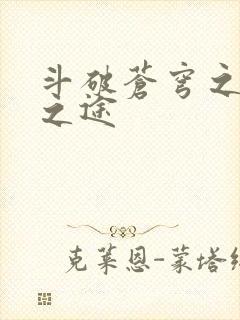 斗破苍穹之
之途
克莱恩-蒙塔